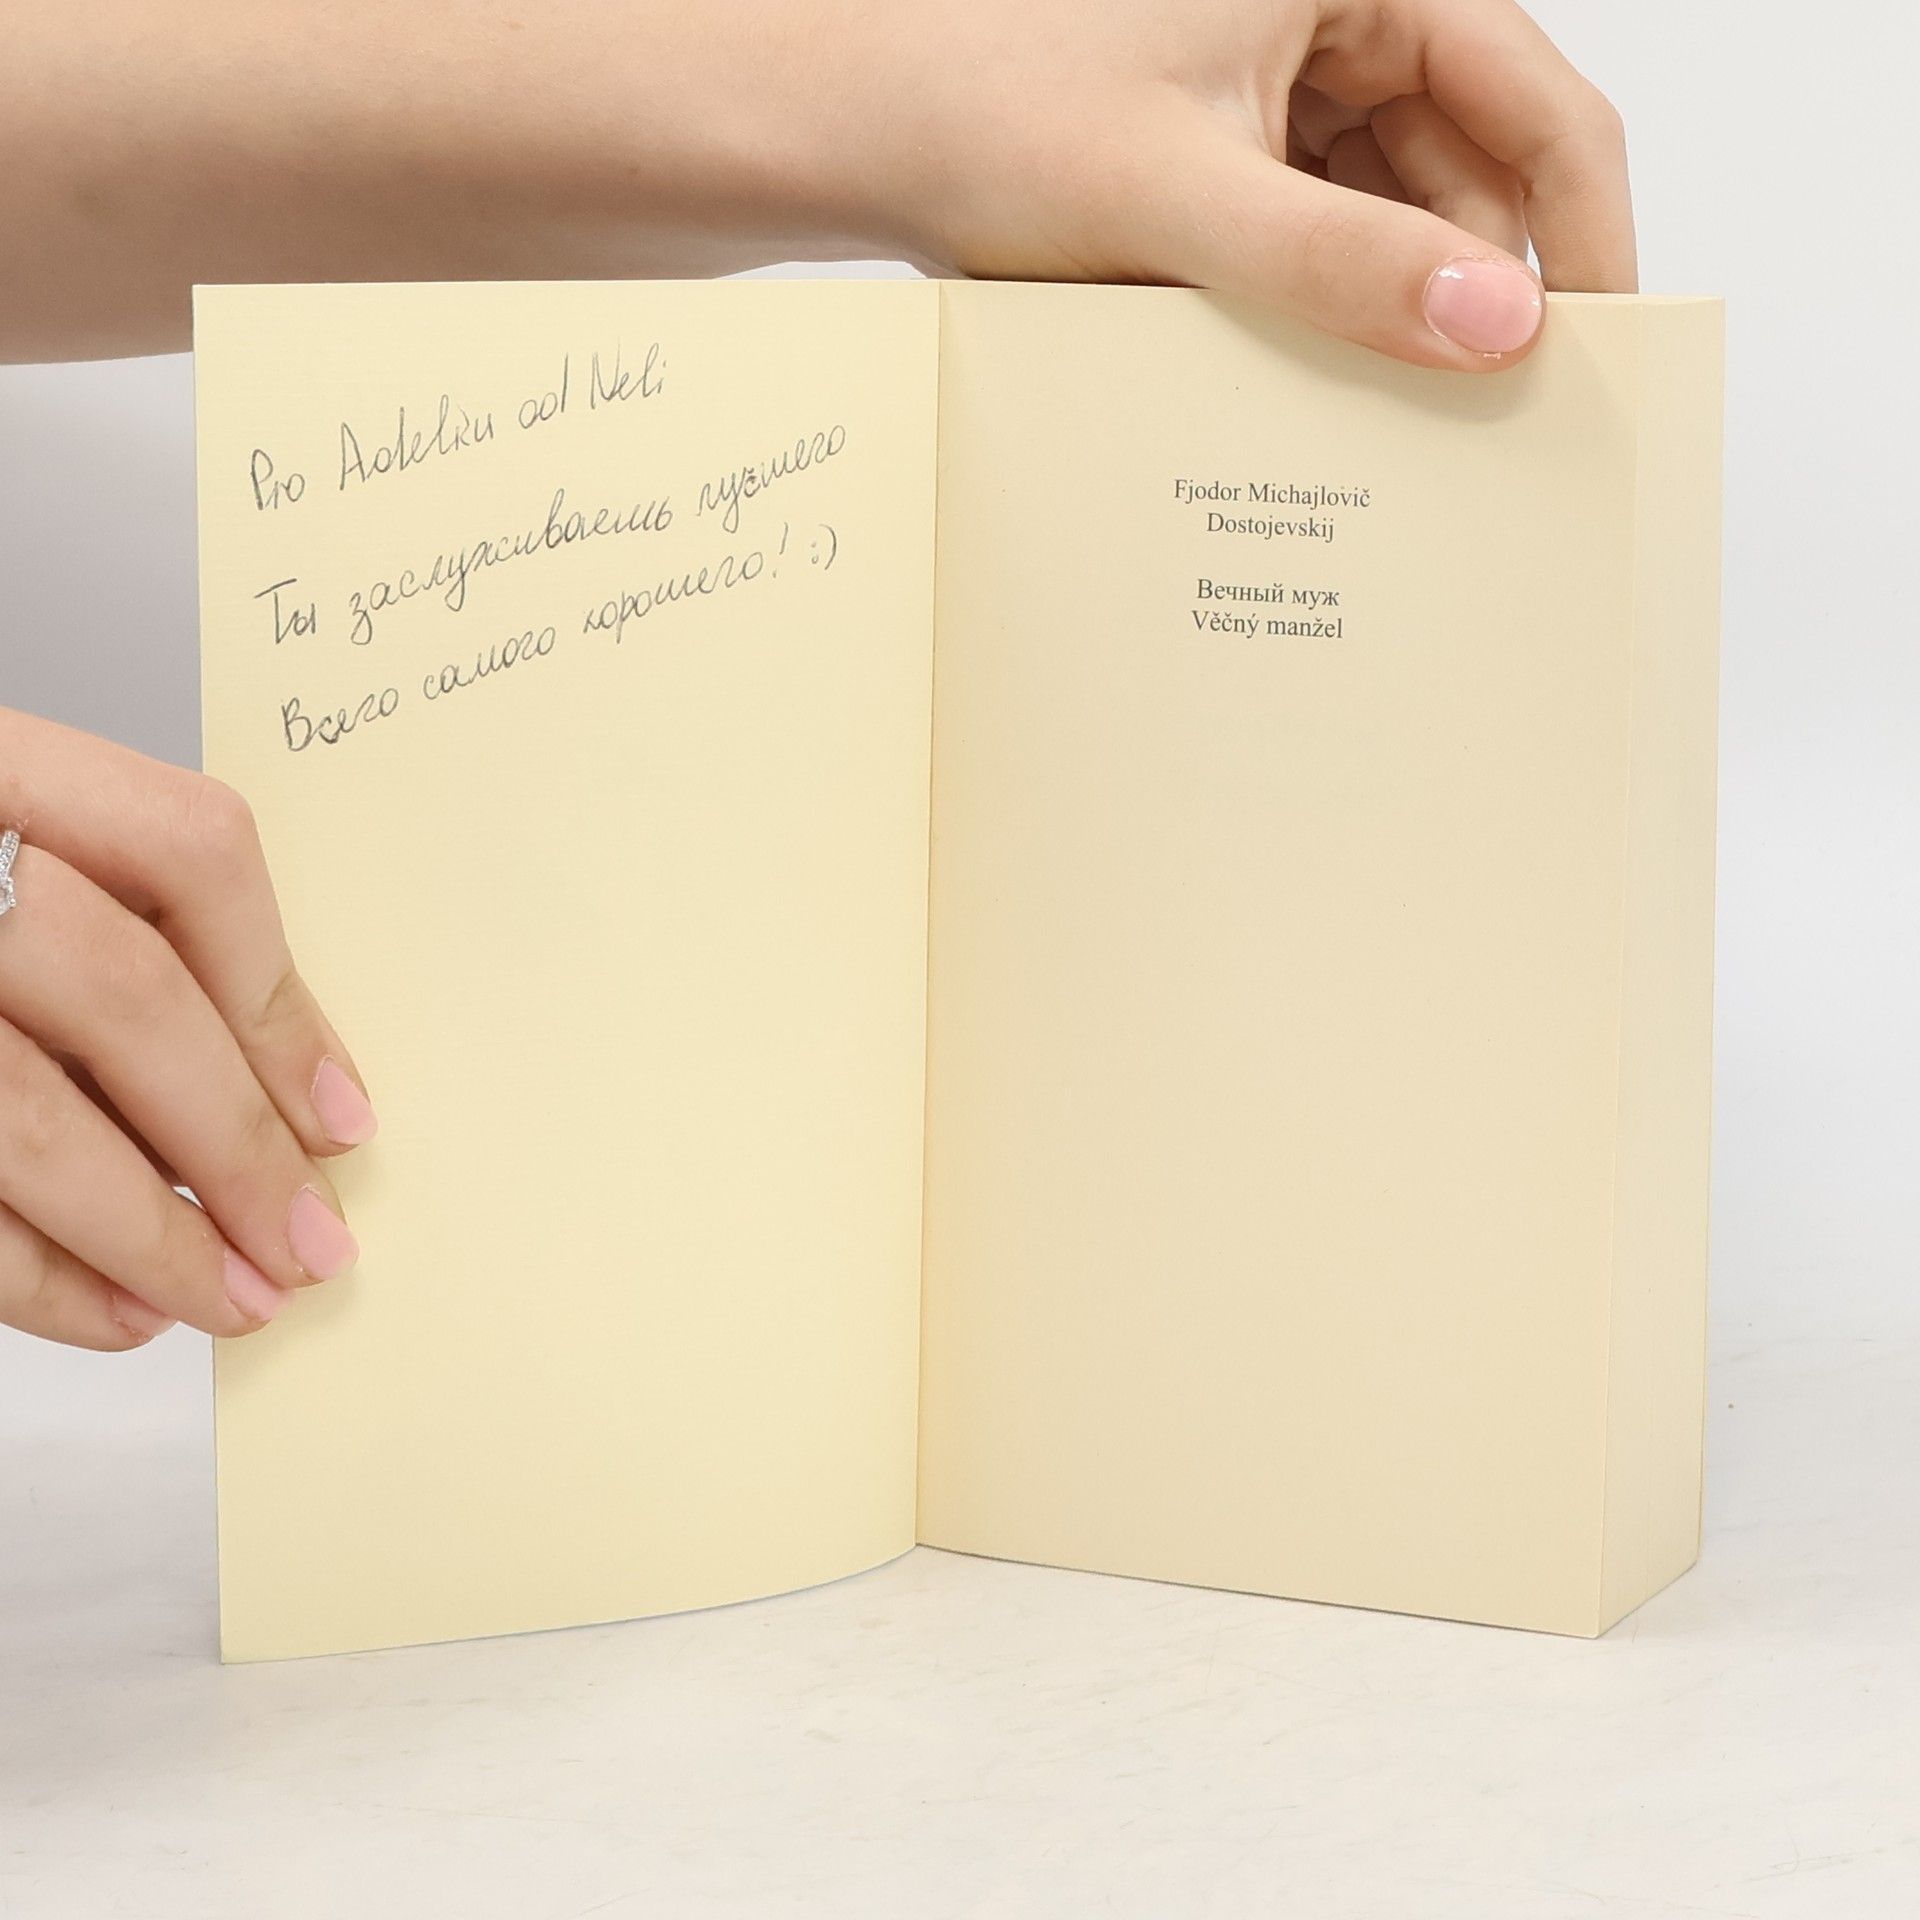 Pro Adelku od Neli
Ты заслуживаешь лучшего
Всего самого хорошего! :)
Fjodor Michajlovič
Dostojevskij
Вечный муж
Věčný manžel